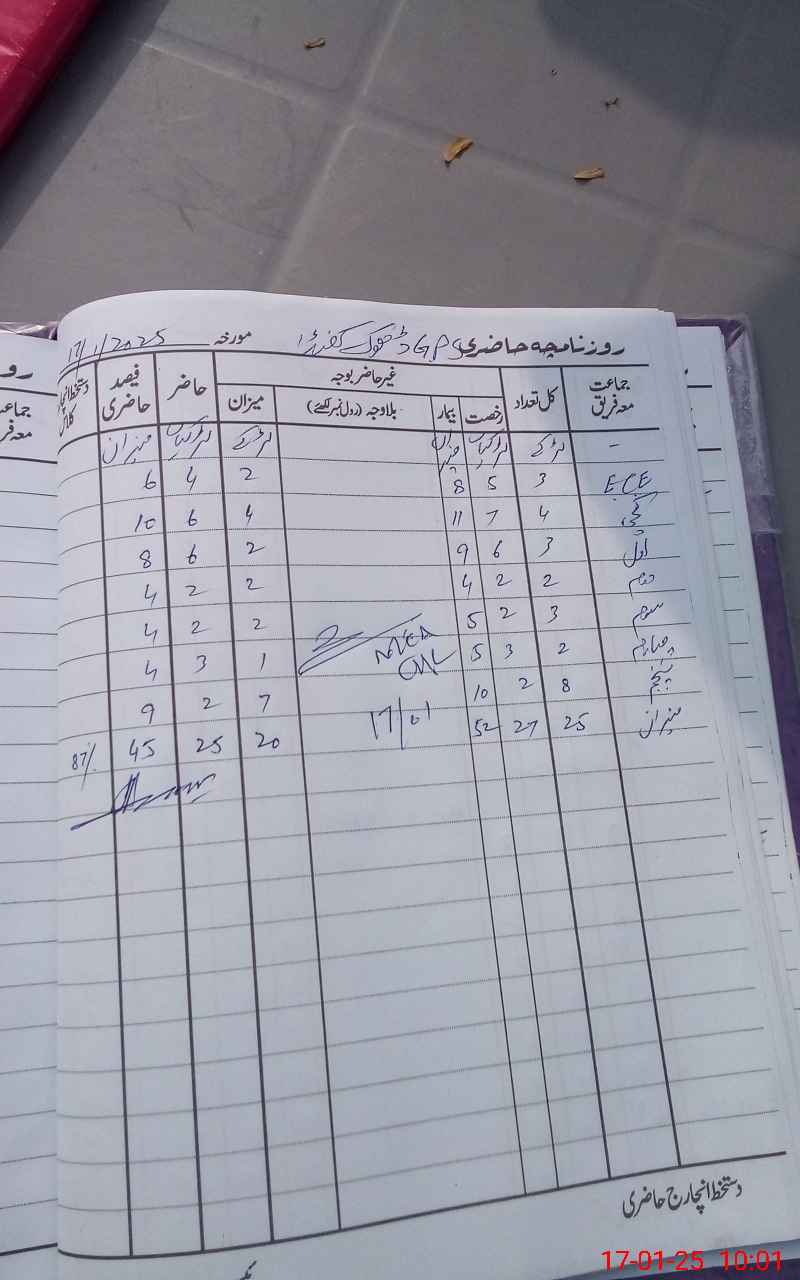 روزنامچہ حاضری G.P.S ڈھوک مورخہ 17/1/2025
جماعت معہ فریق کل تعداد غیر حاضر بوجہ حاضر فیصد حاضری
رخصت بیمار بلاوجہ (رول نمبر لکھئے) میزان
- لڑکے لڑکیاں میزان لڑکے لڑکیاں میزان
ECE 3 5 8 2 4 6
کچی 4 7 11 4 6 10
اول 3 6 9 2 6 8
دوم 2 2 4 2 2 4
سوم 3 2 5 2 2 4
چہارم 2 3 5 MEA 1 3 4
پنجم 8 2 10 7 2 9
میزان 25 27 52 17/01 20 25 45 87%
دستخط انچارج حاضری
رو
جماعت
معہ فر
17-01-25 10:01